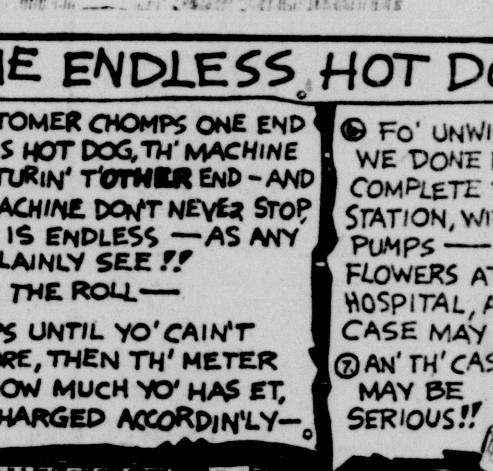 E ENDLESS HOT D
TOMER CHOMPS ONE END
S HOT DOG, TH' MACHINE
TURIN' T'OTHER END - AND
ACHINE DON'T NEVER STOP,
IS ENDLESS — AS ANY
LAINLY SEE!!
THE ROLL —
PS UNTIL YO' CAIN'T
ORE, THEN TH' METER
OW MUCH YO' HAS ET,
HARGED ACCORDIN'LY —
⑥ FO' UNWI
WE DONE
COMPLETE
STATION, WI
PUMPS —
FLOWERS AT
HOSPITAL, A
CASE MAY
⑦ AN' TH' CAS
MAY BE
SERIOUS!!